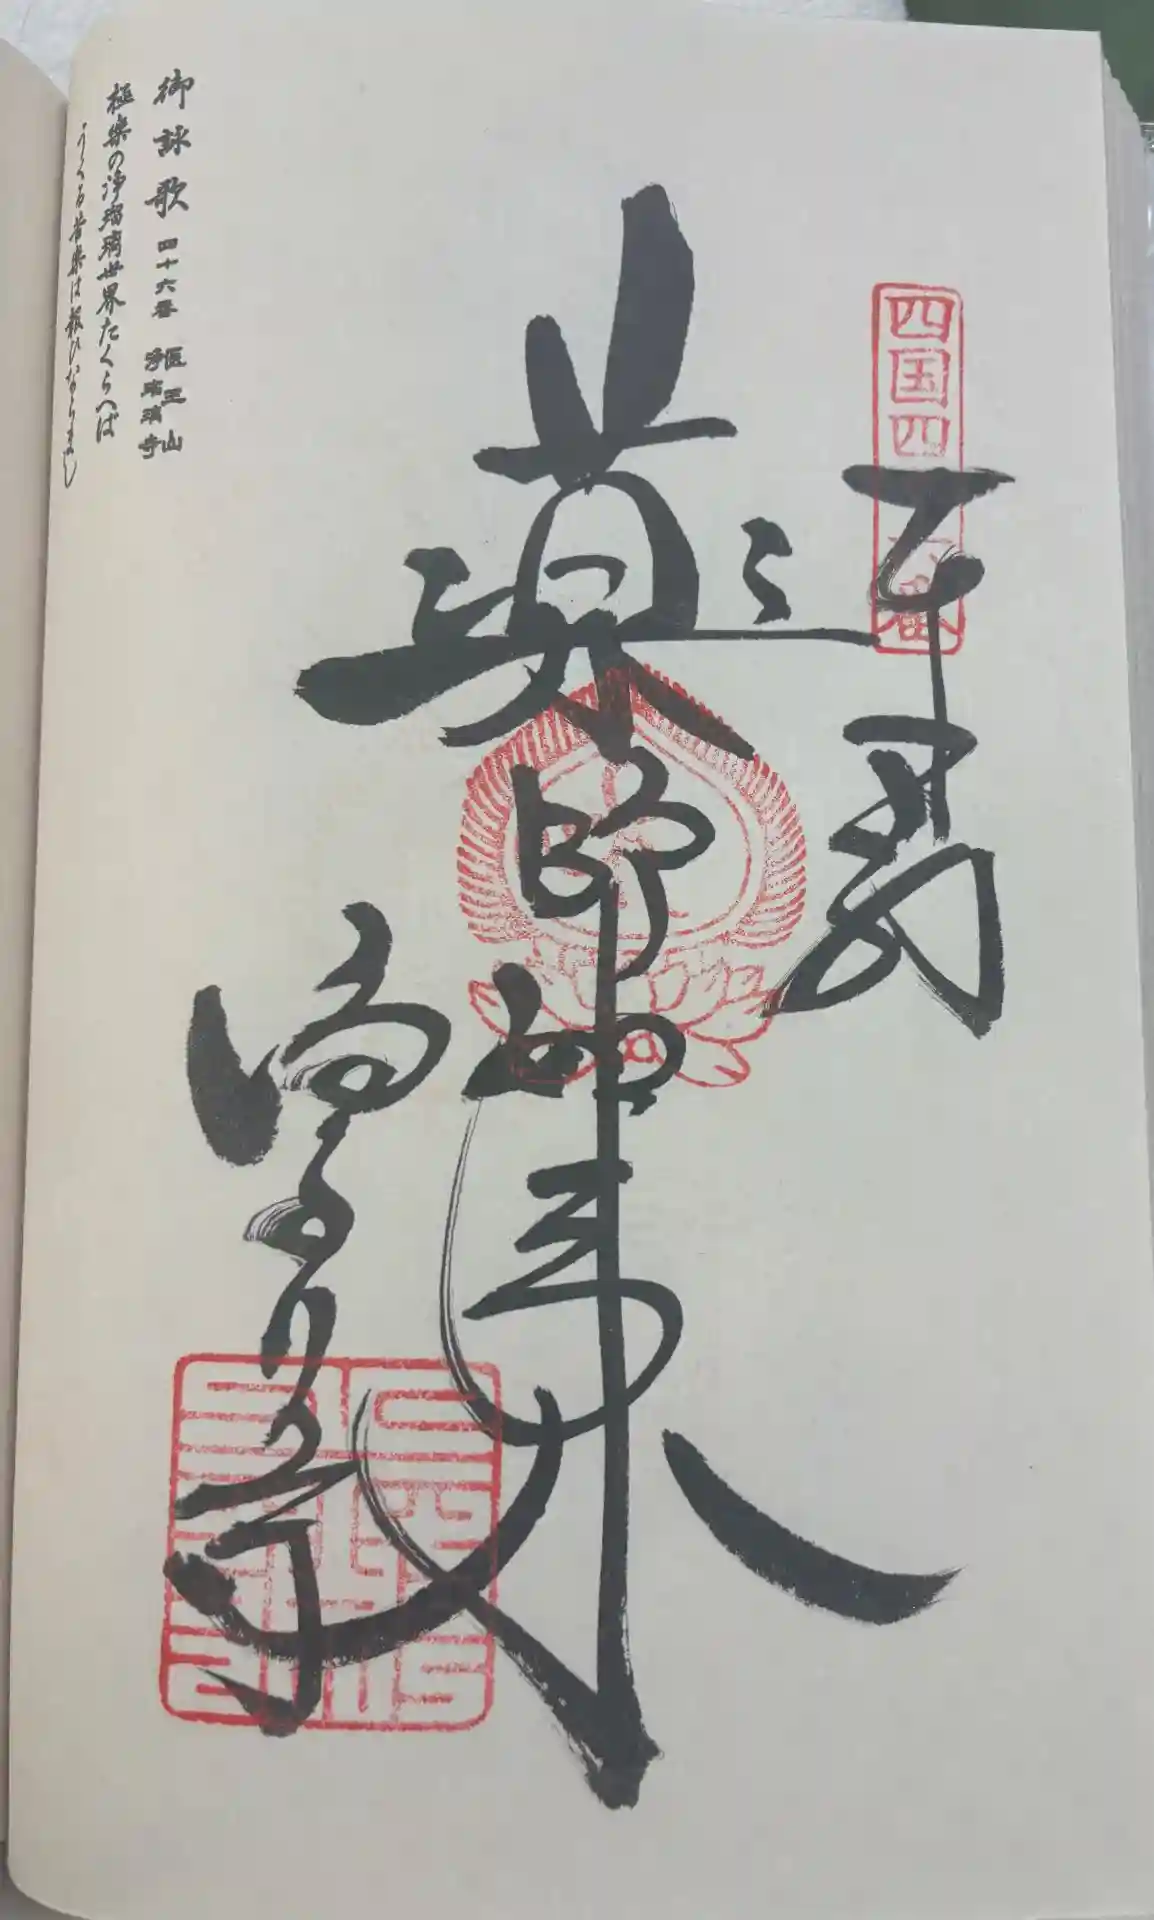 奉拝
四国四十六番
薬師如来
浄るり寺
御詠歌 四十六番 医王山 浄瑠璃寺
極楽の浄瑠璃世界たくらへば
うくる苦楽は報ひならまし